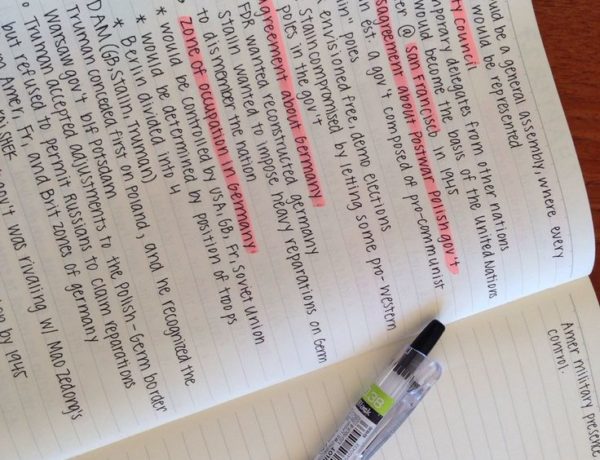 uld be a general assembly, where every
would be represented
ty council
mporary delegates from other nations
would become the basis of the United Nations
er @ San Francisco in 1945
sagreement about Postwar Polish gov't
n est. a gov't composed of pro-communist
poles
envisioned free, demo elections
Stalin compromised by letting some pro-western
poles in the gov't
agreement about Germany
FDR wanted reconstructed germany
Stalin wanted to impose heavy reparations on Germ
to dismember the nation
zone of occupation in Germany
* would be controlled by USA, GB, Fr, Soviet Union
* would be determined by position of troops
* Berlin divided into 4
DAM (GB, Stalin, Truman)
Truman conceded first on Poland, and he recognized the
Warsaw gov't bif Potsdam
Truman accepted adjustments to the Polish-Germ border
but refused to permit Russians to claim reparations
m Amer, Fr, and Brit zones of germany
SHEK
gov't was rivaling w/ Mao Zedong's
by 1945
Amer military presence
control.